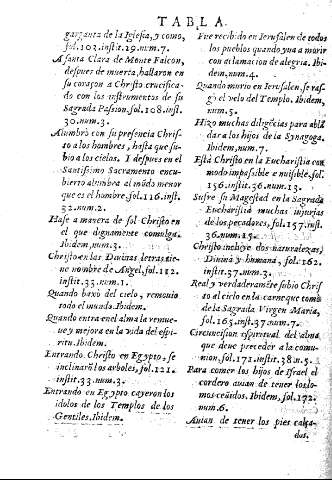 TABLA.
garganta de la Iglesia, y como,
fol. 102. instit. 19. num. 7.
A santa Clara de Monte Falcon,
despues de muerta, hallaron en
su coraçon a Christo crucifica-
do con los instrumentos de su
Sagrada Passion, fol. 108. inst.
30. num. 3.
Alumbrò con su presencia Chris-
to a los hombres, hasta que su-
bio a los cielos. I despues en el
Santissimo Sacramento encu-
bierto alumbra al mũdo menor
que es el hombre, fol. 116. inst.
32. num. 2.
Hase a manera de sol Christo en
el que dignamente comulga.
Ibidem, num. 3.
Christo en las Diuinas letras tie
ne nombre de Angel, fol. 112.
instit. 33. num. 1.
Quando baxò del cielo, remouio
todo el mundo. Ibidem.
Quando entra en el alma la renue-
ue y mejora en la vida del espi-
ritu. Ibidem.
Entrando Christo en Egypto, se
inclinarõ los arboles, fol. 121.
instit. 33. num. 3.
Entrando en Egypto cayeron los
idolos de los Templos de los
Gentiles. Ibidem.
Fue recibido en Ierusalen de todos
los pueblos quando yua a morir
con aclamacion de alegria. Ibi-
dem, num. 4.
Quando murio en Ierusalen, se ras-
gò el velo del Templo. Ibidem,
num. 5.
Hizo muchas diligẽcias para ablã
dar a los hijos de la Synagoga,
Ibidem, num. 7.
Està Christo en la Eucharistia con
modo impassible e inuisible, fol.
156. instit. 36. num. 13.
Sufre su Magestad en la Sagrada
Eucharistia muchas injurias
de los pecadores, fol. 157. inst.
36. num. 15.
Christo incluye dos naturalezas,
Diuina y humana, fol. 162.
instit. 37. num. 3.
Real y verdaderamẽte subio Chris
to al cielo en la carne que tomò
de la Sagrada Virgen Maria,
fol. 163. inst. 37. num. 7.
Circuncision espiritual del alma
que deue preceder a la comu-
nion, fol. 172. instit. 38. n. 5.
Para comer los hijos de Israel el
cordero auian de tener los lo-
mos ceñidos. Ibidem, fol. 172.
num. 6.
Auian de tener los pies calça-
dos.